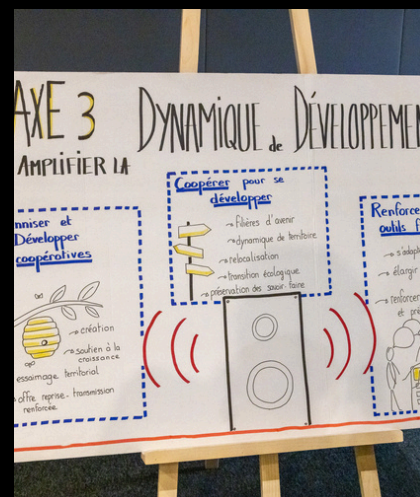 AXE 3 DYNAMIQUE de DÉVELOPPEMEN
AMPLIFIER LA
nniser et
Développer
coopératives
création
soutien à la
croissance
essaimage territorial
offre reprise-transmission
renforcée
Coopérer pour se
développer
filières d'avenir
dynamique de territoire
relocalisation
transition écologique
préservation des savoir-faire
Renforce
outils f
s'adapt
élargir
renforcer
et pré